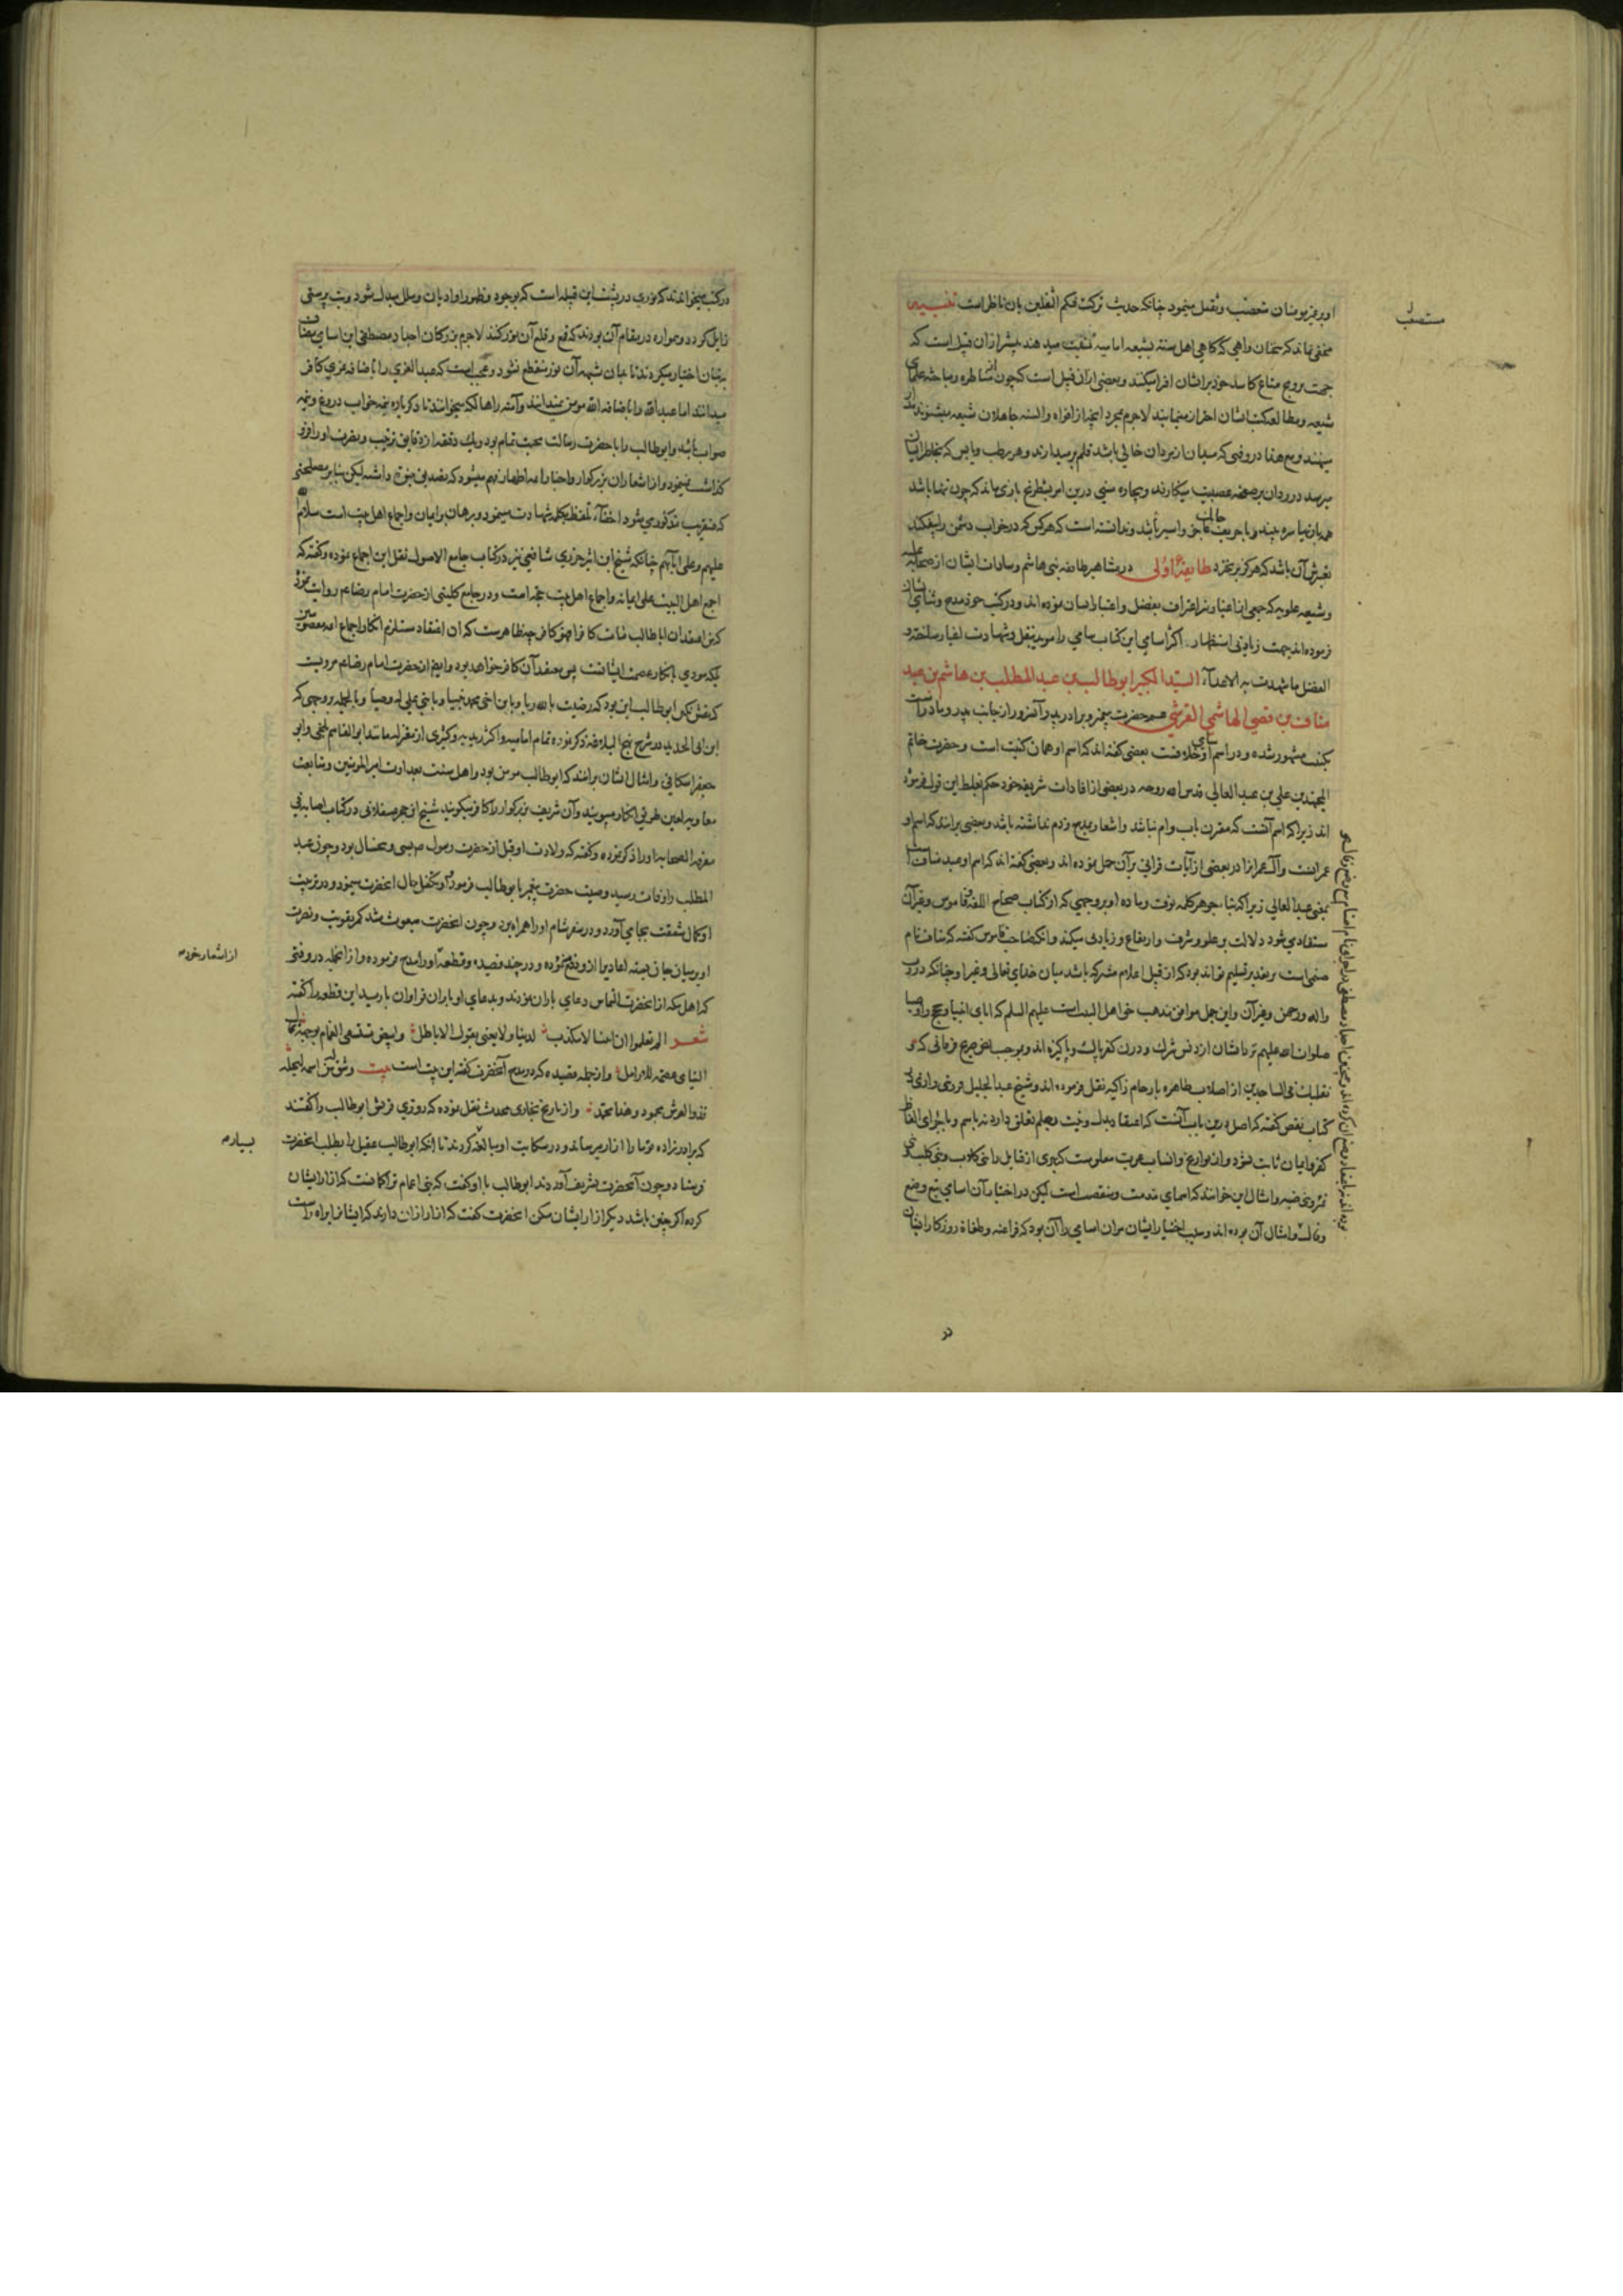 او بر پیر مومنان متعصب و ثقیل مینمود چنانکه حدیث ترکت فیکم الثقلین بان ناظر است تنبیه
مخفی نماند که سخنان واهی که گاهی اهل سنة بشیعه امامیه نسبت میدهند بیشتر از آن قبیل است که
جهت ترویج متاع کاسد خود بر ایشان افترا میکنند و بعضی از ان قبیل است که چون از مناظره و مباحثه علمای
شیعه و مطالعه کتب ایشان احتراز مینمایند لاجرم بمجرد آنچه از افواه و السنه جاهلان شیعه میشنوند
میرسد در زمان بر صفحه عصبیت مینگارند و بیچاره سنی درین امر بشطرنج بازی ماند که چون تنها باشد
همه بازیها بیند و با حریف غالب عاجز و اسیر باشد و ندانسته است که هر کس که در خواب دشمن را بیفکند
تعبیرش آن باشد که هرگز برنخیزد طایفهٔ اولی در مشاهیر طایفه بنی هاشم و سادات ایشان از صحابه علیه
و شیعه علویه که جمعی از اغیار نیز اعتراف بفضل و اعتبار ایشان نموده اند و در کتب خود مدح و ثنای ایشان
فرموده اند جهت زیادتی استظهار اکثر اسامی این کتاب سامی را موید بنقل و شهادت اغیار ساخته و
الفضل ما شهدت به الاعداء السید الاکبر ابوطالب بن عبد المطلب بن هاشم بن عبد
مناف بن قصی الهاشمی القرشی عم حضرت پیغمبر و برادر پدر آنسرور از جانب پدر و مادر است
بکنیت مشهور شده و در اسم سامی او خلافست بعضی گفته اند که اسم او همان کنیت است و حضرت خاتم
المجتهدین علی بن عبد العالی قدس الله روحه در بعضی از افادات شریفه خود حکم بغلط این قول فرموده
اند زیرا که اسم آنست که مقرون باب و ام نباشد و اشعار بمدح و ذم نداشته باشد و بعضی برانند که اسم او
عمرانست و آل عمران را در بعضی از آیات قرانی بر آن حمل نموده اند و بعضی گفته اند که اسم او عبد مناف است
بمعنی عبد العالی زیرا که بنا بر جوهر کلمه نوف و ماده او بر وجهی که از کتاب صحاح اللغه و قاموس و غیر آن
مستفاد می شود دلالت بر علو و شرف و ارتفاع و زیادتی میکند و آنکه صاحب قاموس گفته که مناف نام
صنمی است بر تقدیر تسلیم تواند بود که از قبیل اعلام مشترکه باشد میان خدای تعالی و غیر او چنانکه در رب
و اله و رحمن و غیر آن و این حمل موافق مذهب حق اهل البیت است علیهم السلم که ابای انبیا و حجج و اوصیا
صلوات الله علیهم تردامنشان از دنس شرک و درن کفر پاک و پاکیزه اند و بموجب نص صریح فرقانی که و
تقلبک فی الساجدین از اصلاب طاهره بارحام زاکیه نقل فرموده اند و شیخ عبد الجلیل قزوینی رازی در
کتاب نقض گفته که اصل درین باب آنست که اعتقاد بدل و نیت و علم تعلق دارد نه باسم و باجرای الفاظ
کفر و ایمان ثابت نشود و از تواریخ و انساب عرب معلومست که بسی از قبایل را بنی کلاب و بنی کلب و بنی
نمر و بنی ضبه و امثال این خوانند که اسمای مذمت و منقصت است لیکن در اختیار آن اسامی تبع وضع
و فال و امثال آن بوده اند و سبب اختیار ایشان مران اسامی را آن بود که فراعنه و طغاة روزگار ایشان
در
در کتب میخواندند که نوری در پشت این قبیله است که بوجود و ظهور او ادیان و ملل مبدل شود و بت پرستی
زایل گردد و همواره در مقام آن بودند که قمع و قلع آن نور کنند لاجرم بزرگان اجداد مصطفی این اسامی بمضاف
بتان اختیار میکردند تا بدان شبهه آن نور منقطع نشود و عجب است که عبد العزی را باضافه عزی کافر
میدانند اما عبد الله را باضافه الله مومن نمیدانند و آمنه را هالکه میخوانند تا دگر باره نه خواب دروغ و نه
صواب باشد و ابوطالب را با حضرت رسالت محبت تمام بود و یک دقیقه از دقایق تربیت و نصرت او را فرو
گذاشت نمینمود و از اشعار ان بزرگوار و اخبار ائمه اطهار فهم میشود که تصدیق نبوت داشته لیکن بنابر مصلحتی
که عنقریب مذکور می شود اخفاء تلفظ بکلمه شهادت مینمود و برهان بر ایمان او اجماع اهل بیت است سلام الله
علیهم و علی آبائهم چنانکه شیخ ابن اثیر جزری شافعی نیز در کتاب جامع الاصول نقل این اجماع نموده و گفته که
اجمع اهل البیت علی ایمانه و اجماع اهل بیت حجة است و در جامع کلینی از حضرت امام رضا عم روایت نموده
که من اعتقد ان اباطالب مات کافرا فهو کافر چه ظاهرست که ان اعتقاد مستلزم انکار اجماع ائمه معصومین
بلکه مودی بانکار عصمت ایشانست پس معتقد آن کافر خواهد بود و ایضا از حضرت امام رضا عم مرویست
که نقش نگین ابوطالب این بود که رضیت بالله ربا و بابن اخی محمد نبیا و بابنی علی له وصیا و بالجمله بر وجهی که
ابن ابی الحدید در شرح نهج البلاغه ذکر نموده تمام امامیه و اکثر زیدیه و کثیری از معتزله مانند ابو القاسم بلخی و ابو
جعفر اسکافی و امثال ایشان برانند که ابوطالب مومن بود و اهل سنت بعداوت امیر المومنین و متابعت
معاویه لعین طریق انکار میپویند و آن شریف بزرگوار را کافر میگویند شیخ ابن حجر عسقلانی در کتاب اصابه فی
معرفة الصحابه او را ذکر نموده و گفته که ولادت او قبل از حضرت رسول ص بسی و پنج سال بود و چون عبد
المطلب را وفات رسید وصیت حضرت پیغمبر بابوطالب فرمود و او متکفل حال انحضرت میبود و در تربیت
او کمال شفقت بجای آورد و در سفر شام او را همراه برد و چون انحضرت مبعوث شد کمر بتقویت و نصرت
او بر میان جان بسته اعادی را ازو دفع نموده و در چند قصیده و قطعه او را مدح فرموده و از انجمله در وقتی
که اهل مکه از انحضرت التماس دعای باران نمودند و بدعای او باران فراوان بارید این قطعه را گفته
شعر الم تعلموا ان ابننا لا مکذب لدینا ولا یعنی بقول الاباطل وابیض یستسقی الغمام بوجهه ثمال
الیتامی عصمة للارامل و از جمله قصیده که در مدح آنحضرت گفته این بیت است بیت وشق له من اسمه لیجله
فذو العرش محمود وهذا محمد و از تاریخ بخاری محدث نقل نموده که روزی قریش ابوطالب را گفتند
که برادرزاده تو ما را ازار میرساند و در شکایت او مبالغه کردند تا انکه ابوطالب عقیل را بطلب انحضرت
فرستاد و چون آنحضرت تشریف آوردند ابوطالب با او گفت که بنی اعمام تو گمانست که ازار ایشان
کرده اگر چنین باشد دیگر ازار ایشان مکن انحضرت گفت که انا از ان دارند که ایشانرا براه راست
از اشعار خود
بسیار